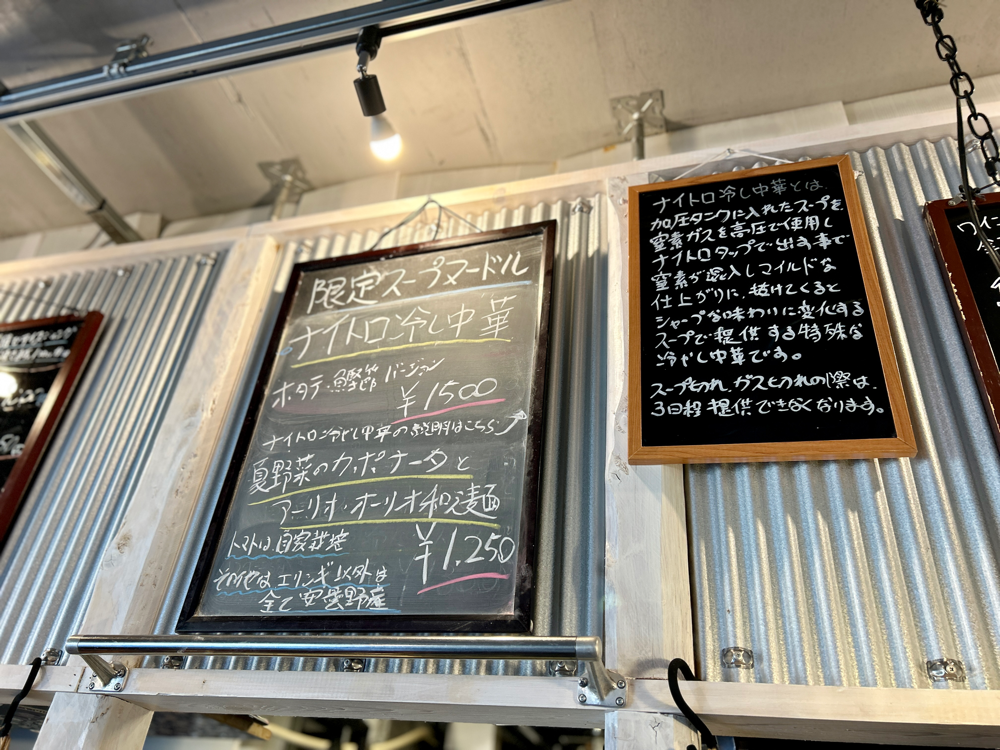 限定スープヌードル
ナイトロ冷し中華
ホタテ・鰹節 バージョン
¥1500
ナイトロン冷やし中華の説明はこちら
夏野菜のカポナータと
アーリオ・オーリオ和え麺
¥1,250
トマトは、自家栽培
その他はエリンギ以外は
全て安曇野産
ナイトロ冷し中華とは、
加圧タンクに入れたスープを、
窒素ガスを高圧で使用し
ナイトロタップで出す事で
窒素が混入しマイルドな
仕上がりに、抜けてくると
シャープな味わりに変化する
スープで提供する特殊な
冷やし中華です。
スープ切れ、ガスとぅれの際は、
3日程提供できなくなります。
ワイ